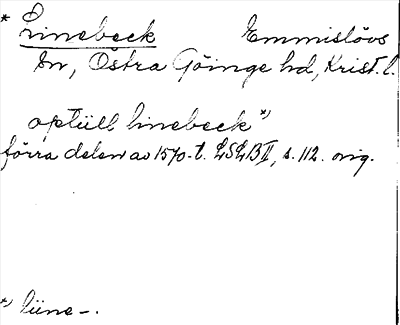 * Linebeck Emmislövs
sn, Östra Göinge hd, Krist. l.
optill linebeck *)
förra delen av 1570-t. LSLB II, s. 112. orig.
*) lüne-.